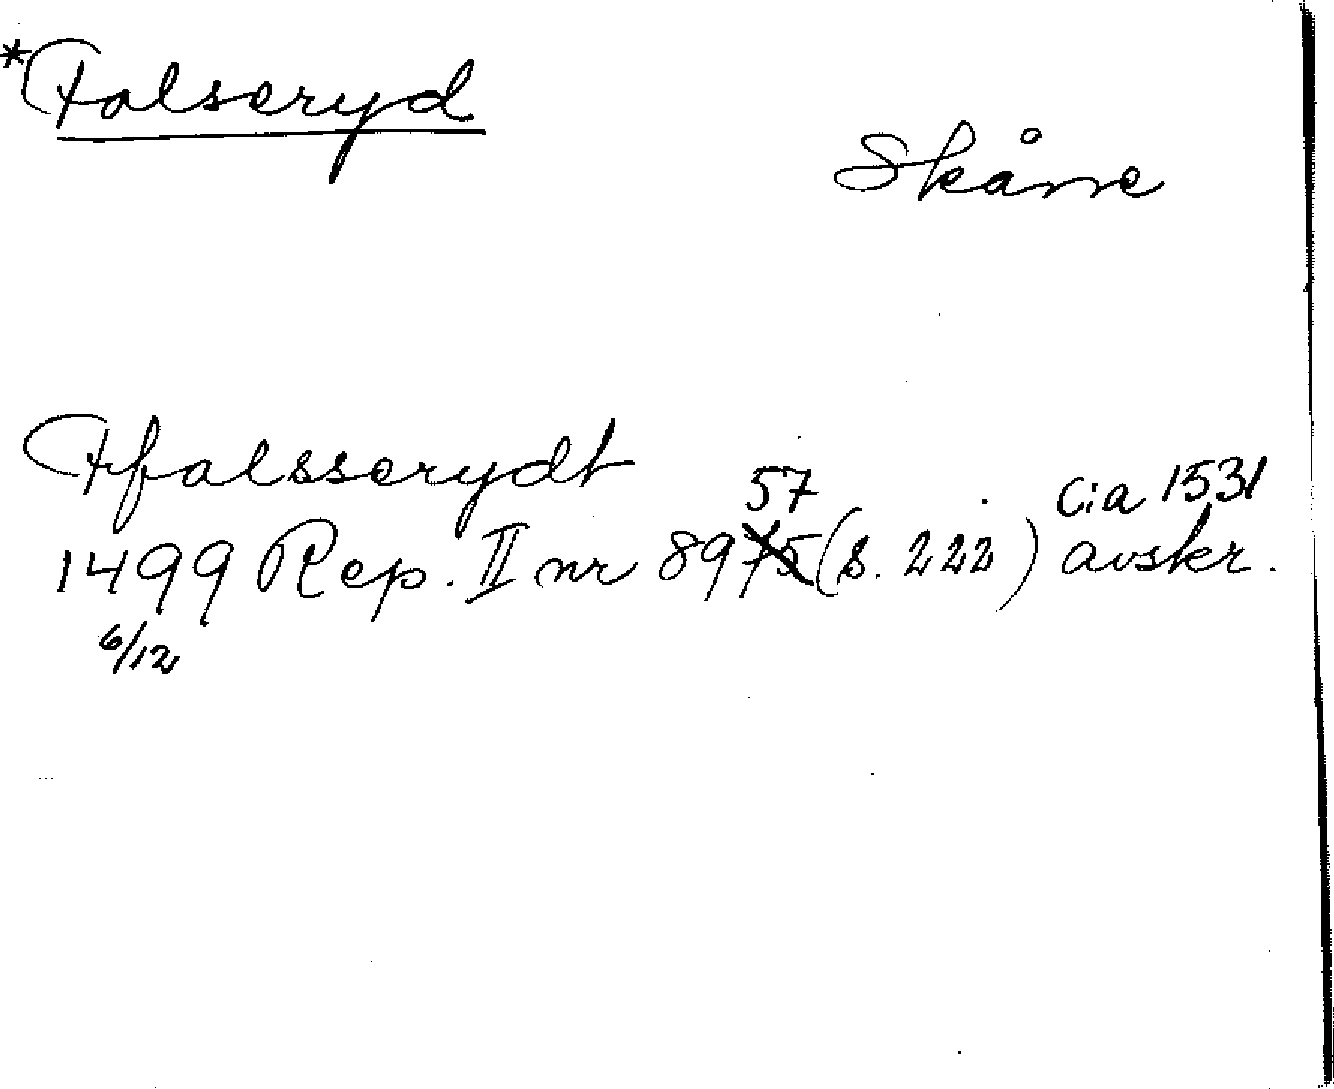 *Falseryd
Skåne
Ffalsserydt
57 cia 1531
1499 Rep. II nr 8975 (s. 222) avskr.
6/12